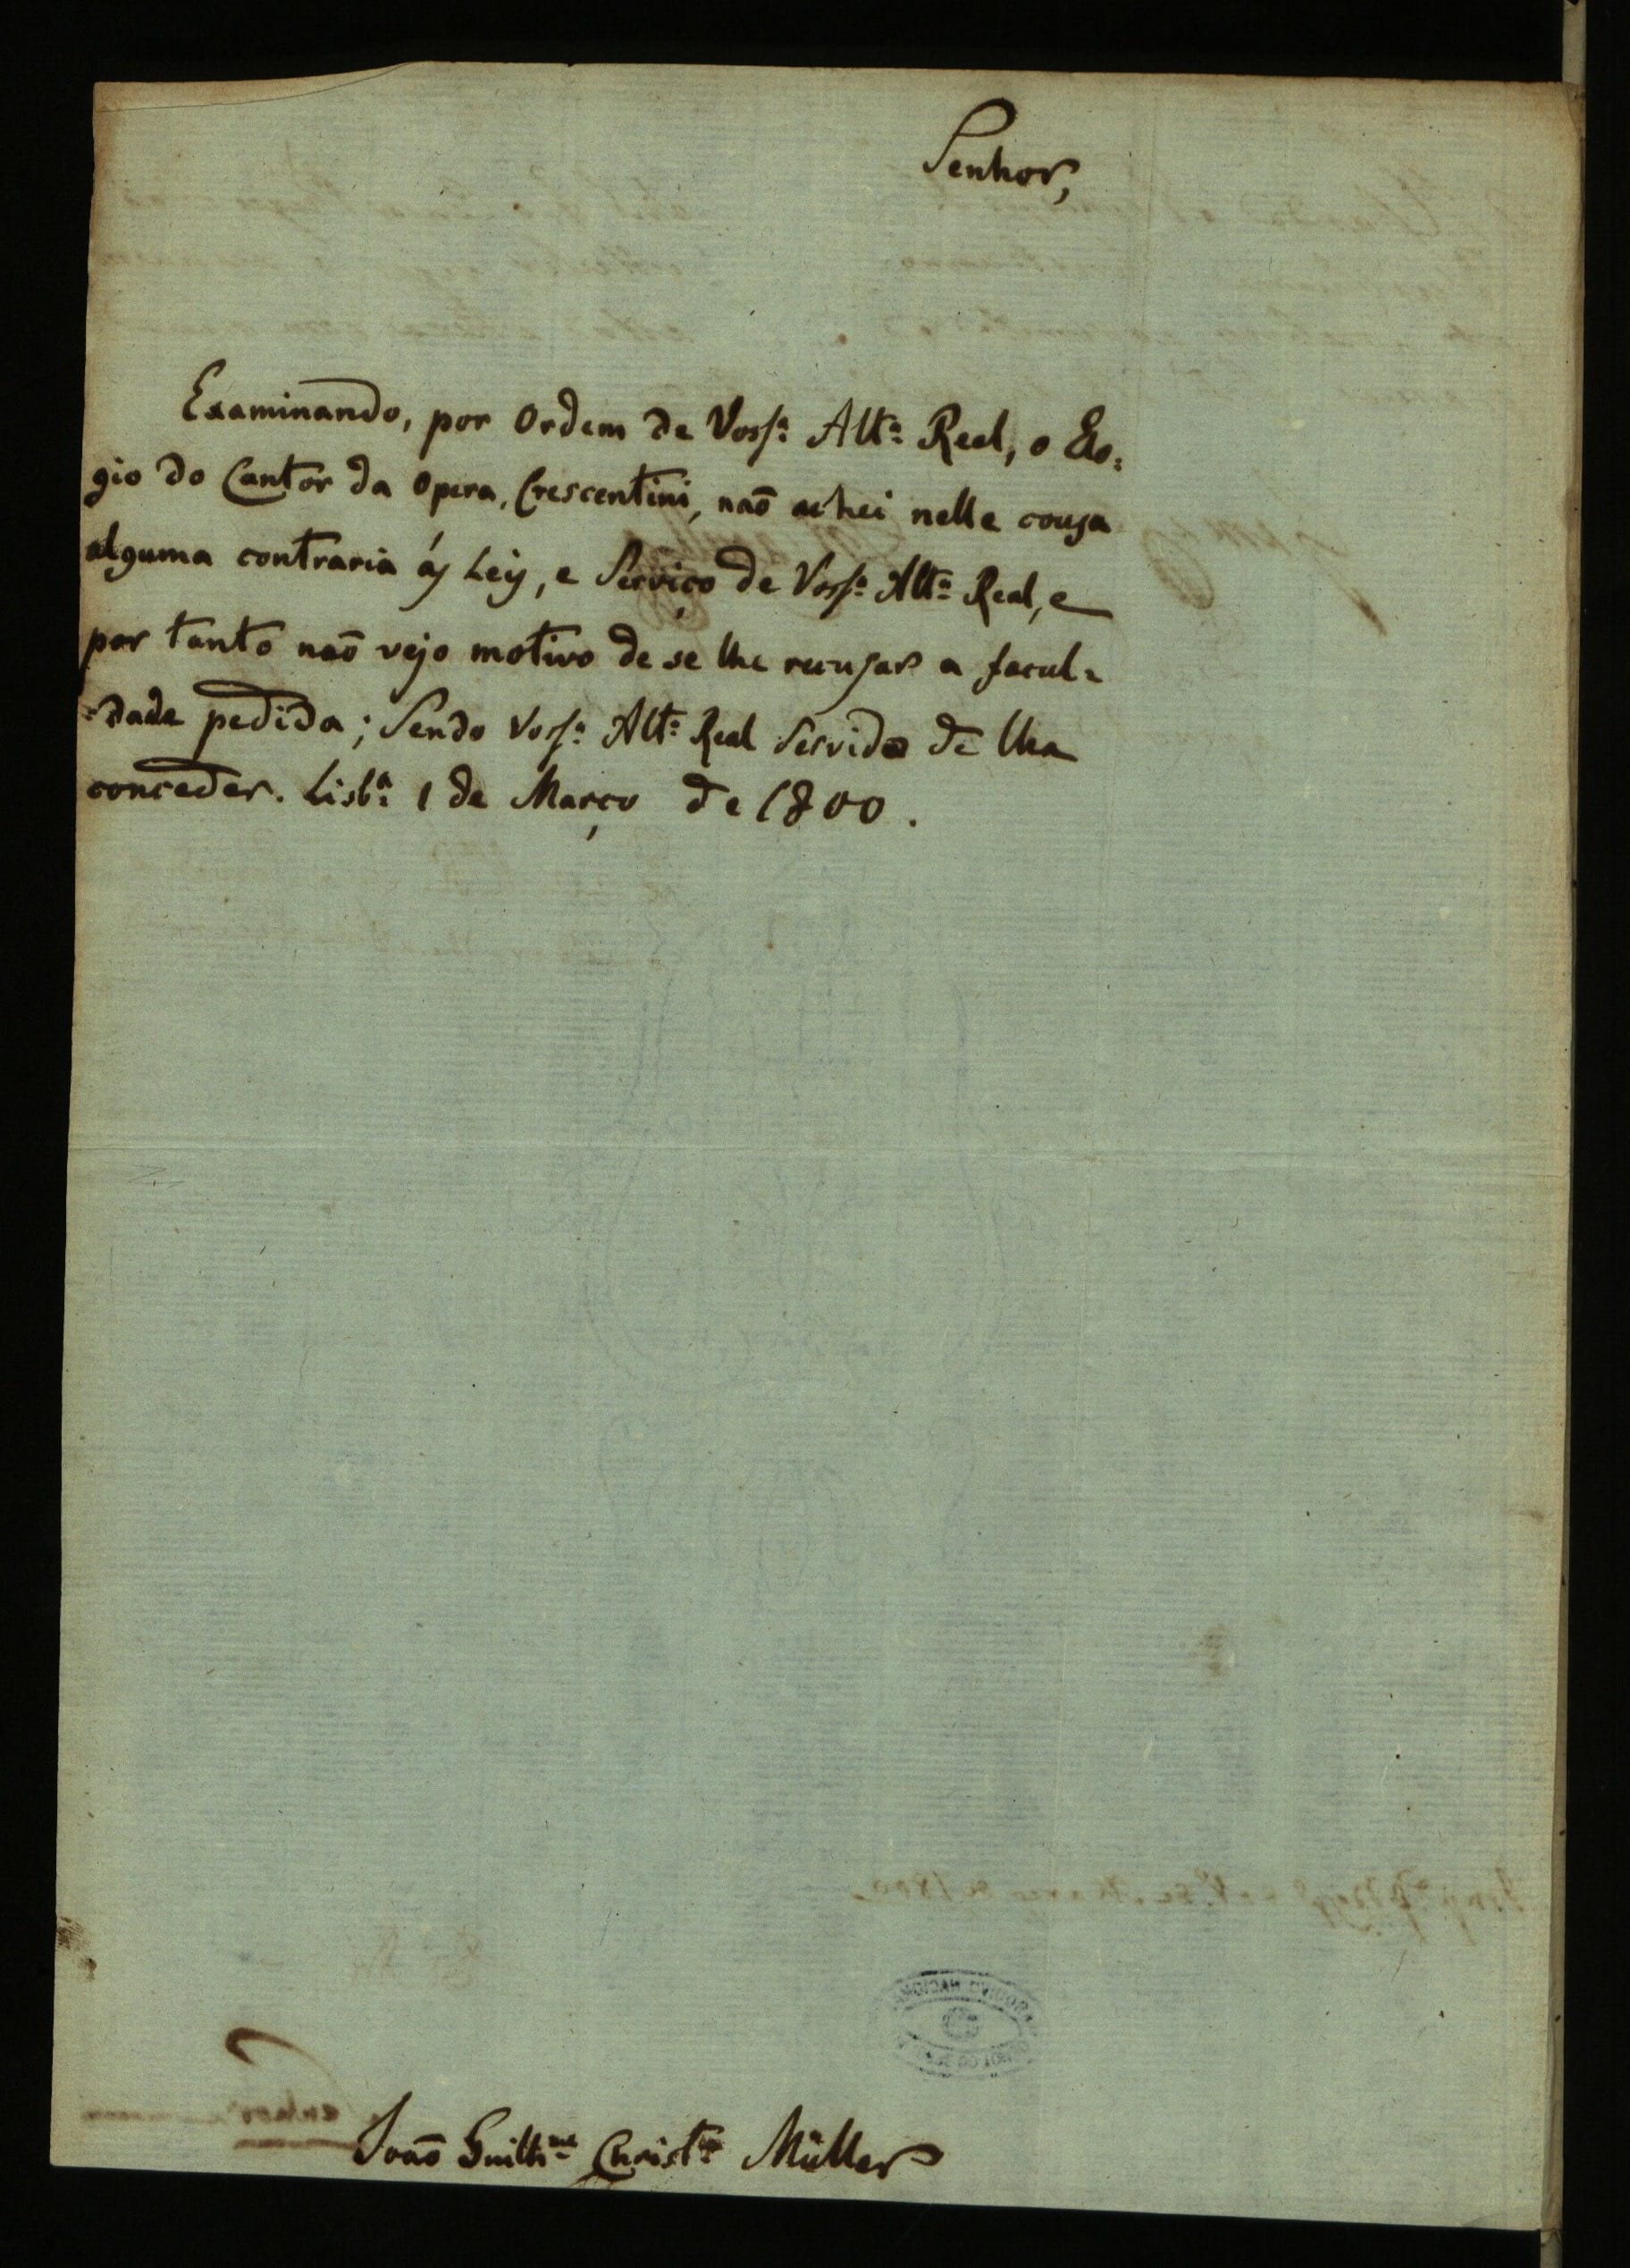 Senhor,
Examinando, por Ordem de Voss.ª Alt.ª Real, o Elo=
gio do Cantor da Opera, Crescentini, naõ achei nelle cousa
alguma contraria ás Leis, e Serviço de Voss.ª Alt.ª Real, e
por tanto naõ vejo motivo de se lhe recusar a facul=
=dade pedida; Sendo Voss.ª Alt.ª Real Servido de lha
conceder. Lisb.ª 1 de Março de 1800.
Joaõ Guilh.me Christ.º Müller